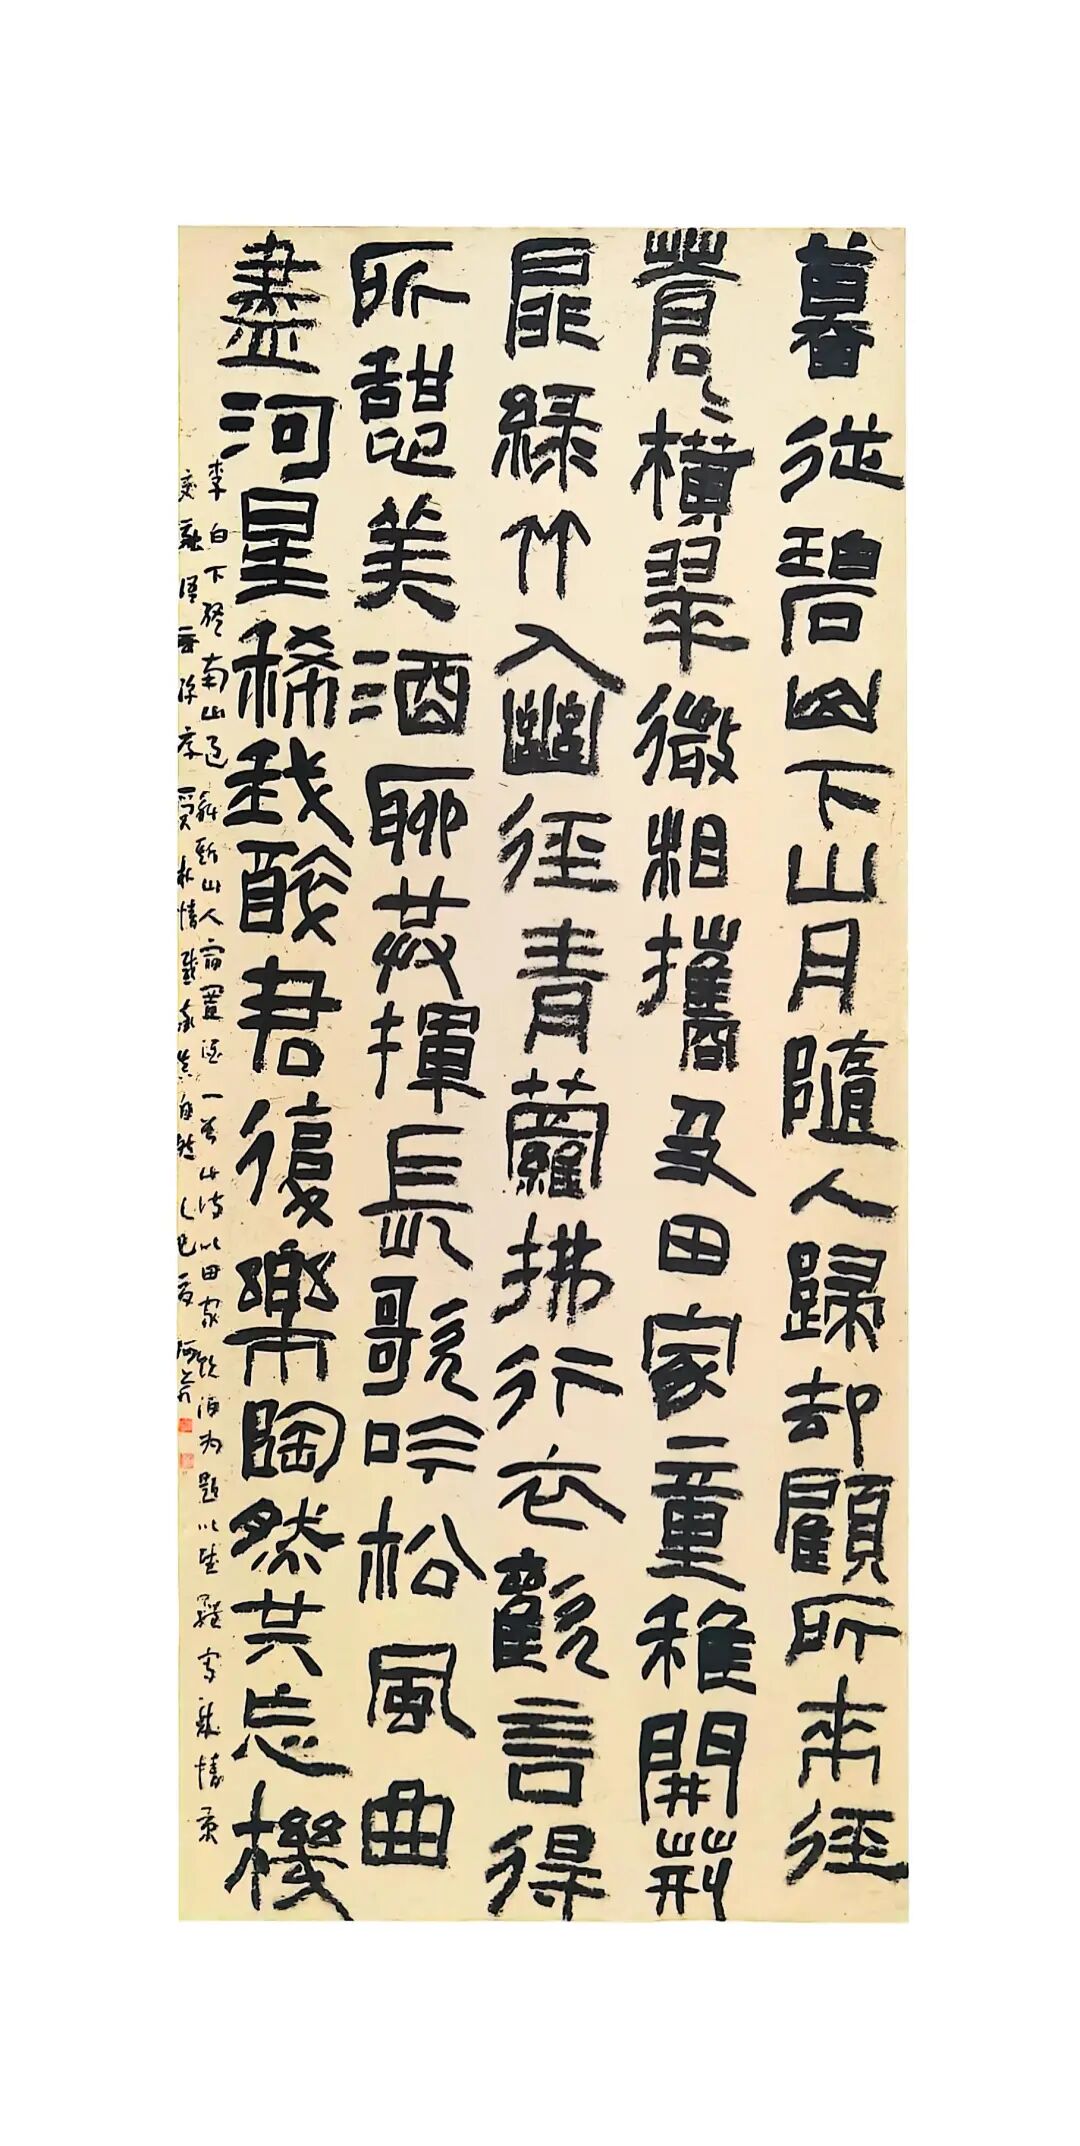 暮從碧山下山月隨人歸却顧所來徑
蒼〻橫翠微相攜及田家童稚開荊
扉綠竹入幽徑青蘿拂行衣歡言得
所憇美酒聊共揮長歌吟松風曲
盡河星稀我醉君復樂陶然共忘機
李白下終南山過斛斯山人宿置酒一首此詩以田家飲酒為題以寫情景
交融質朴情真自然乙巳夏